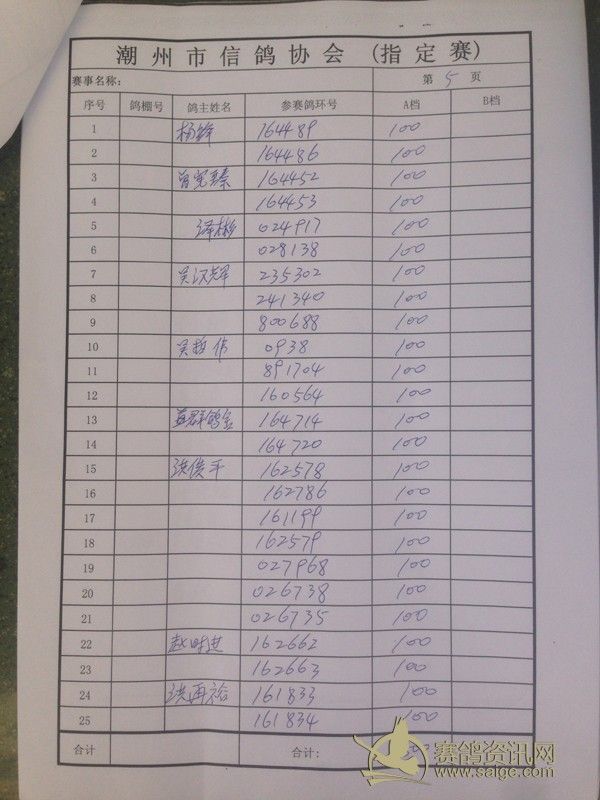 潮州市信鸽协会 (指定赛)
赛事名称: 第 5 页
序号 鸽棚号 鸽主姓名 参赛鸽环号 A档 B档
1 杨锋 164489 100
2 164486 100
3 曾宪 164452 100
4 164453 100
5 泽彬 024917 100
6 028138 100
7 吴汉辉 235302 100
8 241340 100
9 800688 100
10 吴哲伟 0938 100
11 891704 100
12 160564 100
13 群鸽舍 164714 100
14 164720 100
15 洪俊平 162578 100
16 162786 100
17 161199 100
18 162579 100
19 027968 100
20 026738 100
21 026735 100
22 赵时进 162662 100
23 162663 100
24 洪再裕 161833 100
25 161834 100
合计 合计:
赛鸽资讯网
www.saige.com